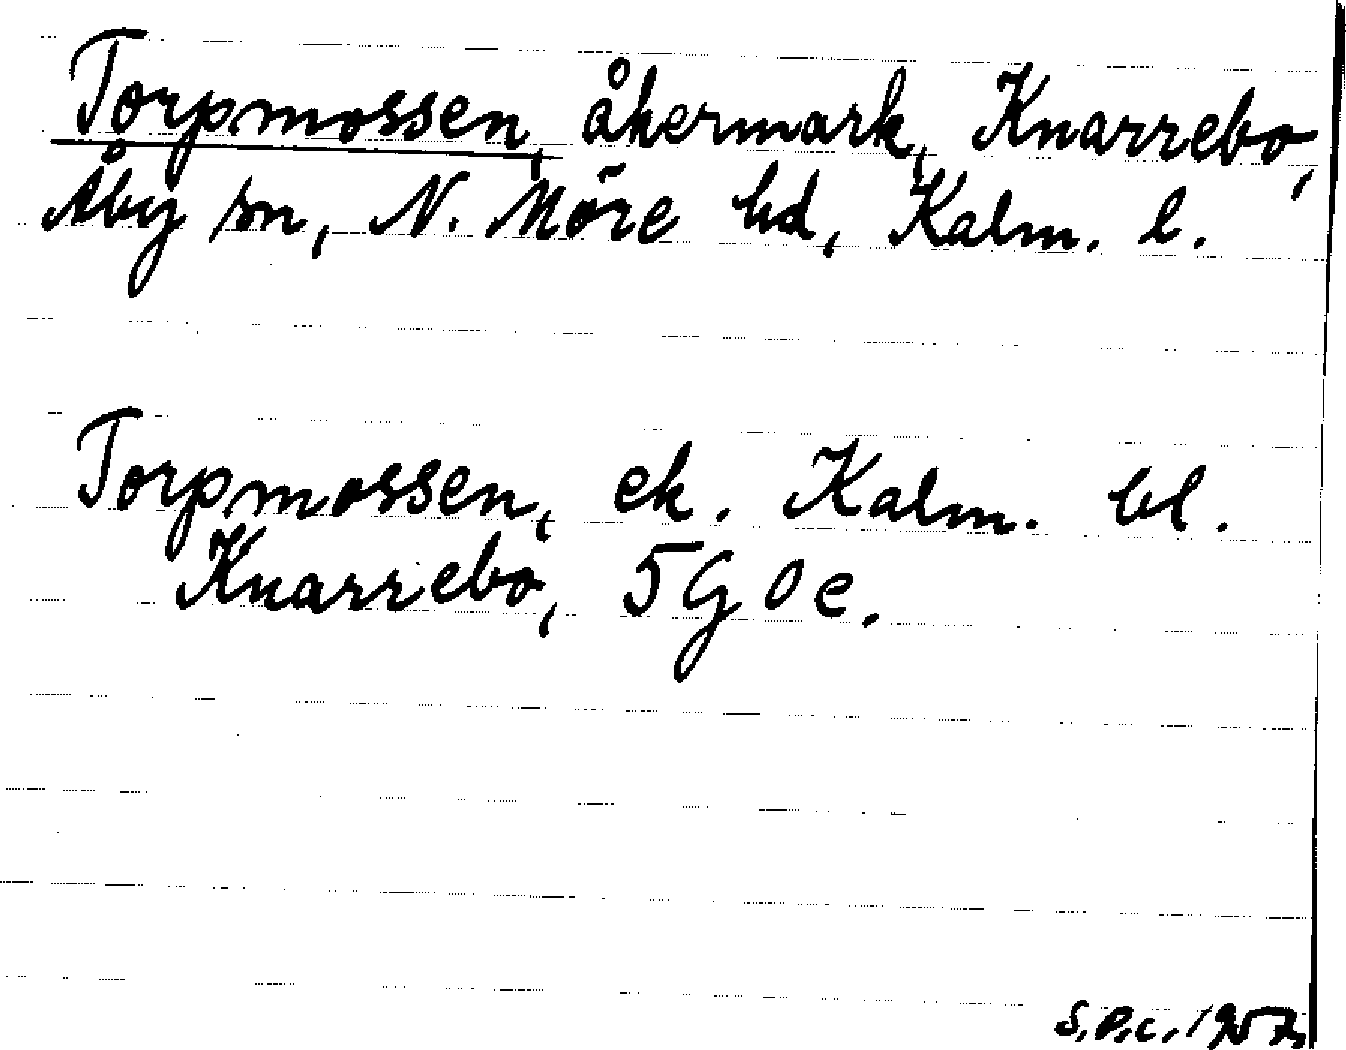 Torpmossen, åkermark, Knarrebo,
Åby sn, N. Möre hd, Kalm. l.
Torpmossen, ek. Kalm. bl.
Knarrebo, 5 G 0 e.
S.P.C. 1957.